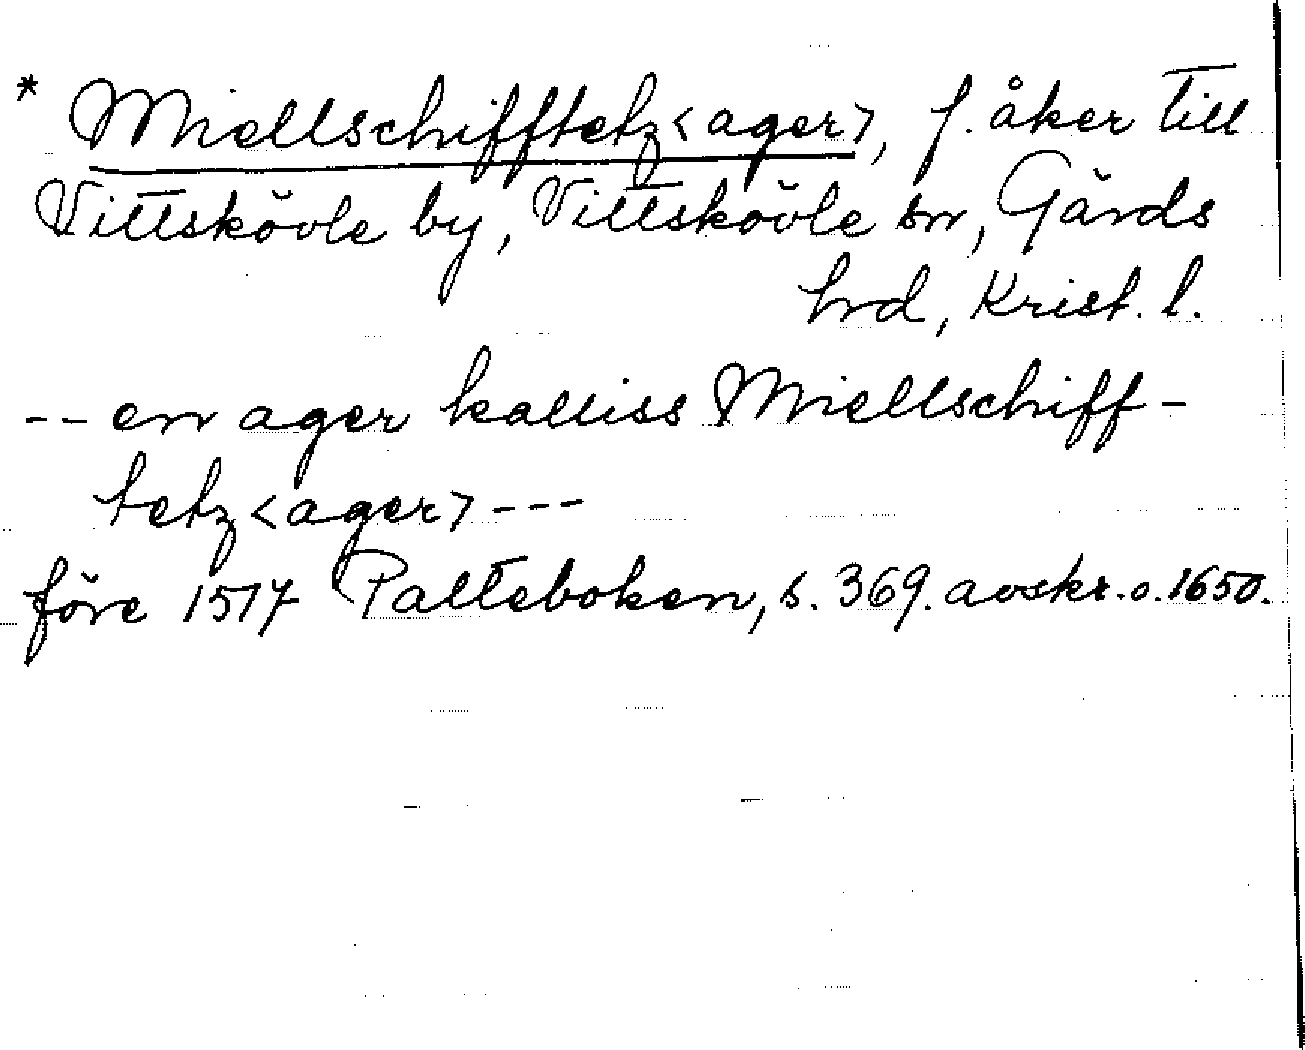 * Miellschifftetz<ager>, f. åker till
Vittskövle by, Vittskövle sn, Gärds
hrd, Krist. l.
-- en ager kalliss Miellschiff-
tetz<ager> ---
före 1517 Palteboken, s. 369. avskr. o. 1650.